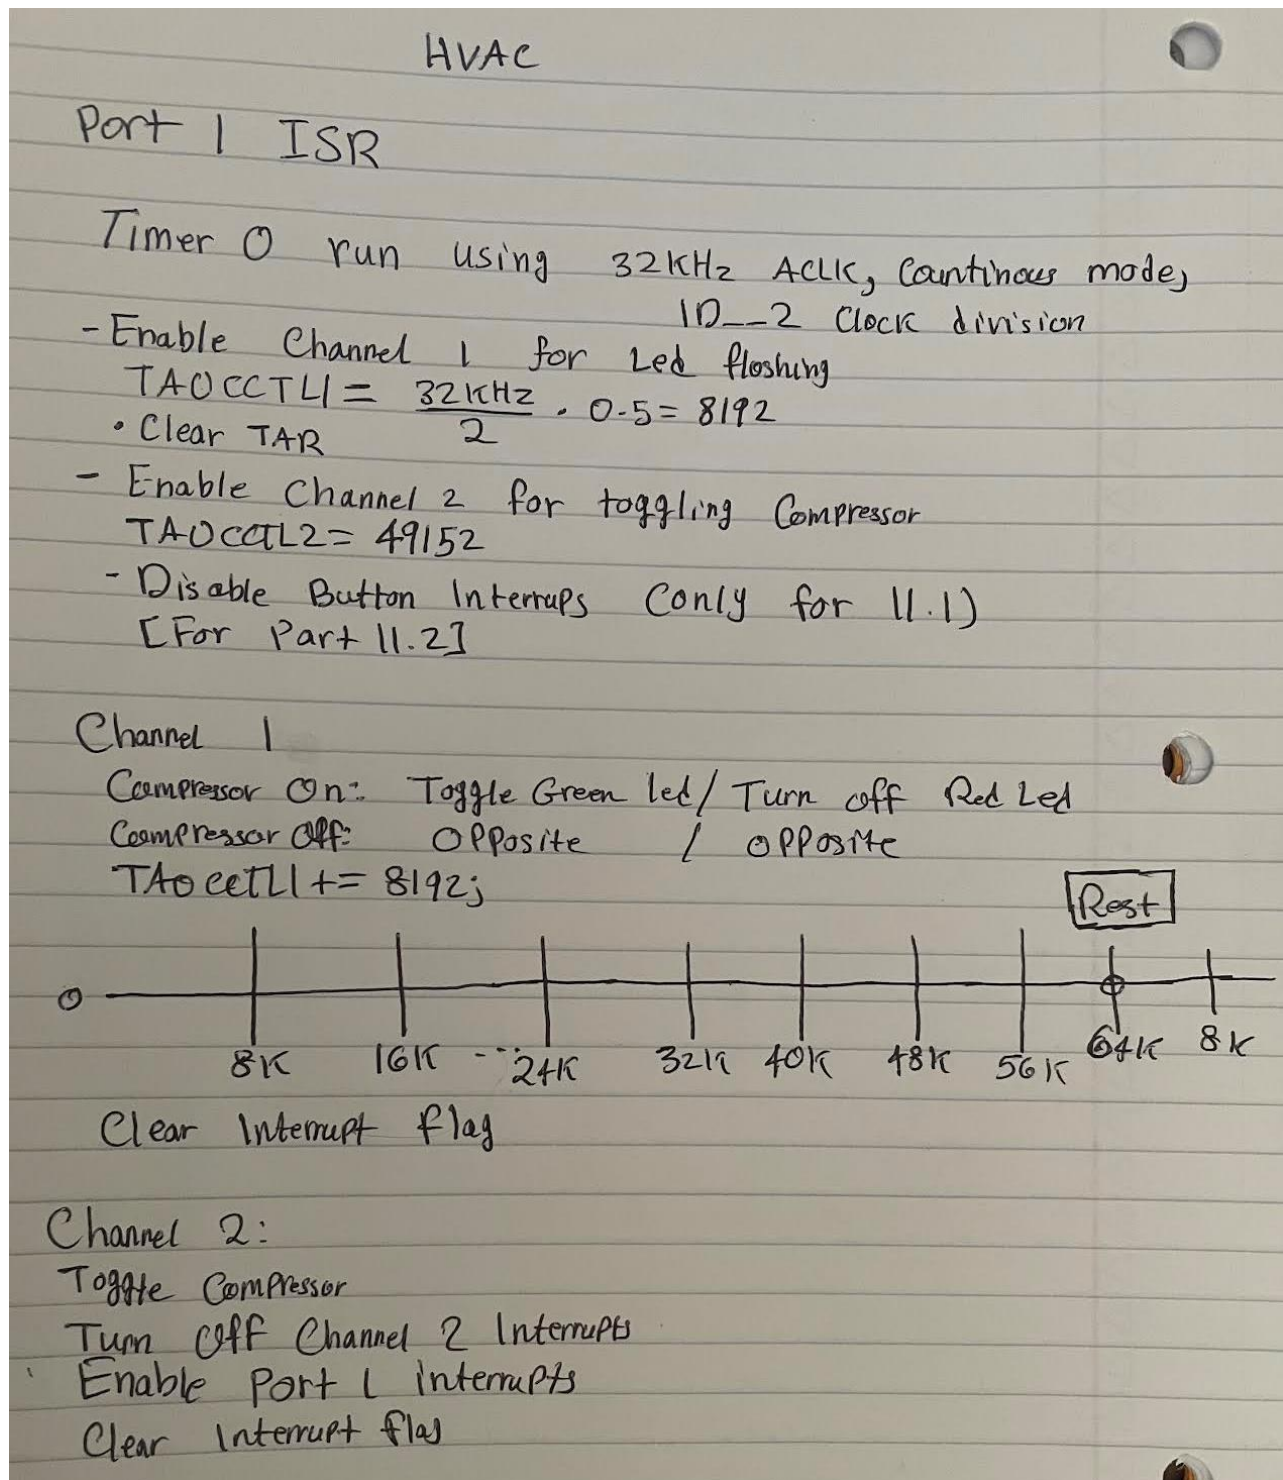 HVAC
Port 1 ISR
Timer 0 run using 32KHz ACLK, Countinous mode,
ID__2 Clock division
- Enable Channel 1 for Led floshing
TA0CCTL1 = 32KHz / 2 · 0.5 = 8192
• Clear TAR
- Enable Channel 2 for toggling Compressor
TA0CCTL2 = 49152
- Disable Button Interrups (only for 11.1)
[For Part 11.2]
Channel 1
Compressor On: Toggle Green led / Turn off Red Led
Compressor Off: Opposite / opposite
TA0CCTL1 += 8192;
Rest
0
8K 16K ... 24K 32K 40K 48K 56K 64K 8K
Clear Interrupt flag
Channel 2:
Toggle Compressor
Turn Off Channel 2 Interrupts
Enable Port 1 interrupts
Clear Interrupt flag